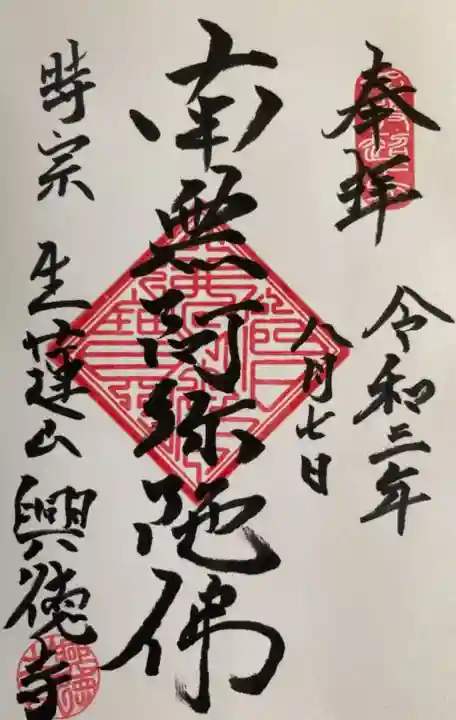 奉拝
令和三年
八月七日
南無阿弥陀佛
時宗 生蓮山 興徳寺